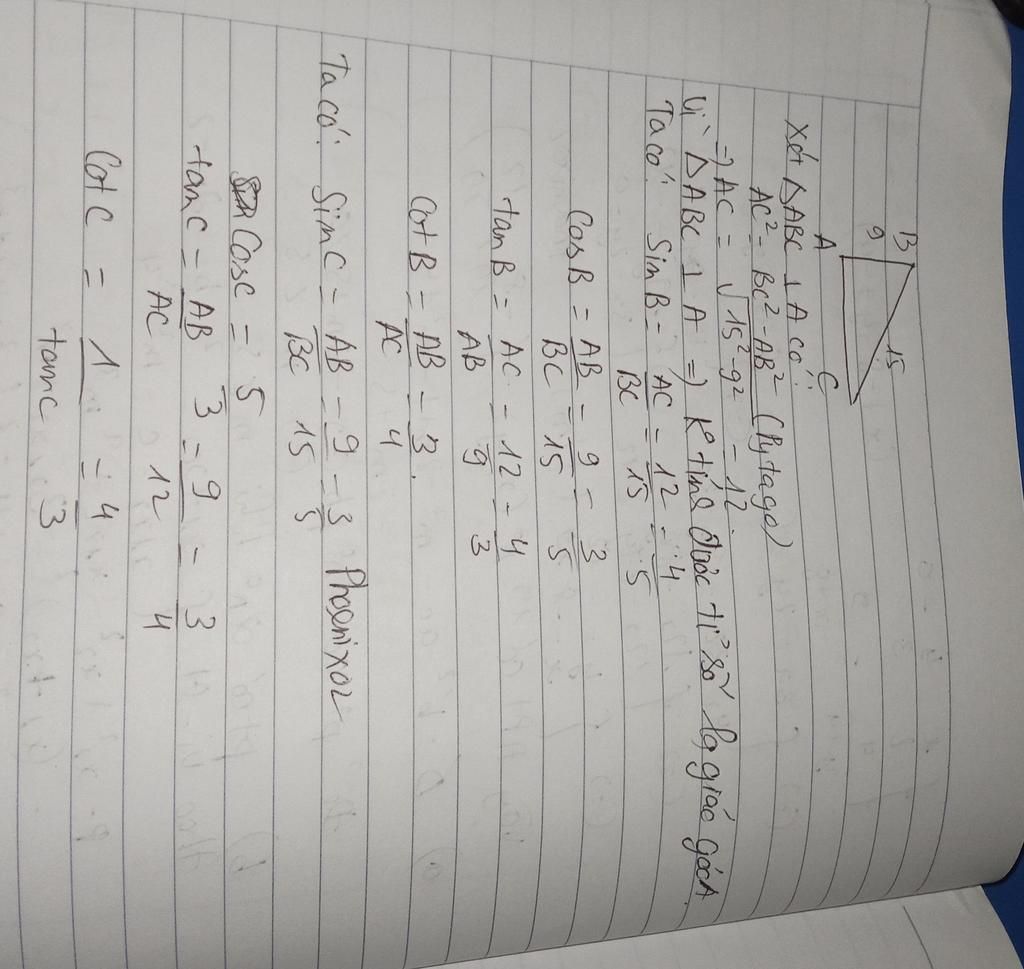 B
9
15
A
C
Xét △ABC ⊥ A có:
AC² = BC² - AB² (Pytago)
=> AC = √15² - 9² = 12
Vì △ABC ⊥ A => K° tính được tỉ số lg giác góc A
Ta có: Sin B = AC/BC = 12/15 = 4/5
Cos B = AB/BC = 9/15 = 3/5
tan B = AC/AB = 12/9 = 4/3
Cot B = AB/AC = 3/4.
Ta có: Sin C = AB/BC = 9/15 = 3/5 Phoenix02
Cos C = 5/3
tan C = AB/AC = 9/12 = 3/4
Cot C = 1/tan C = 4/3